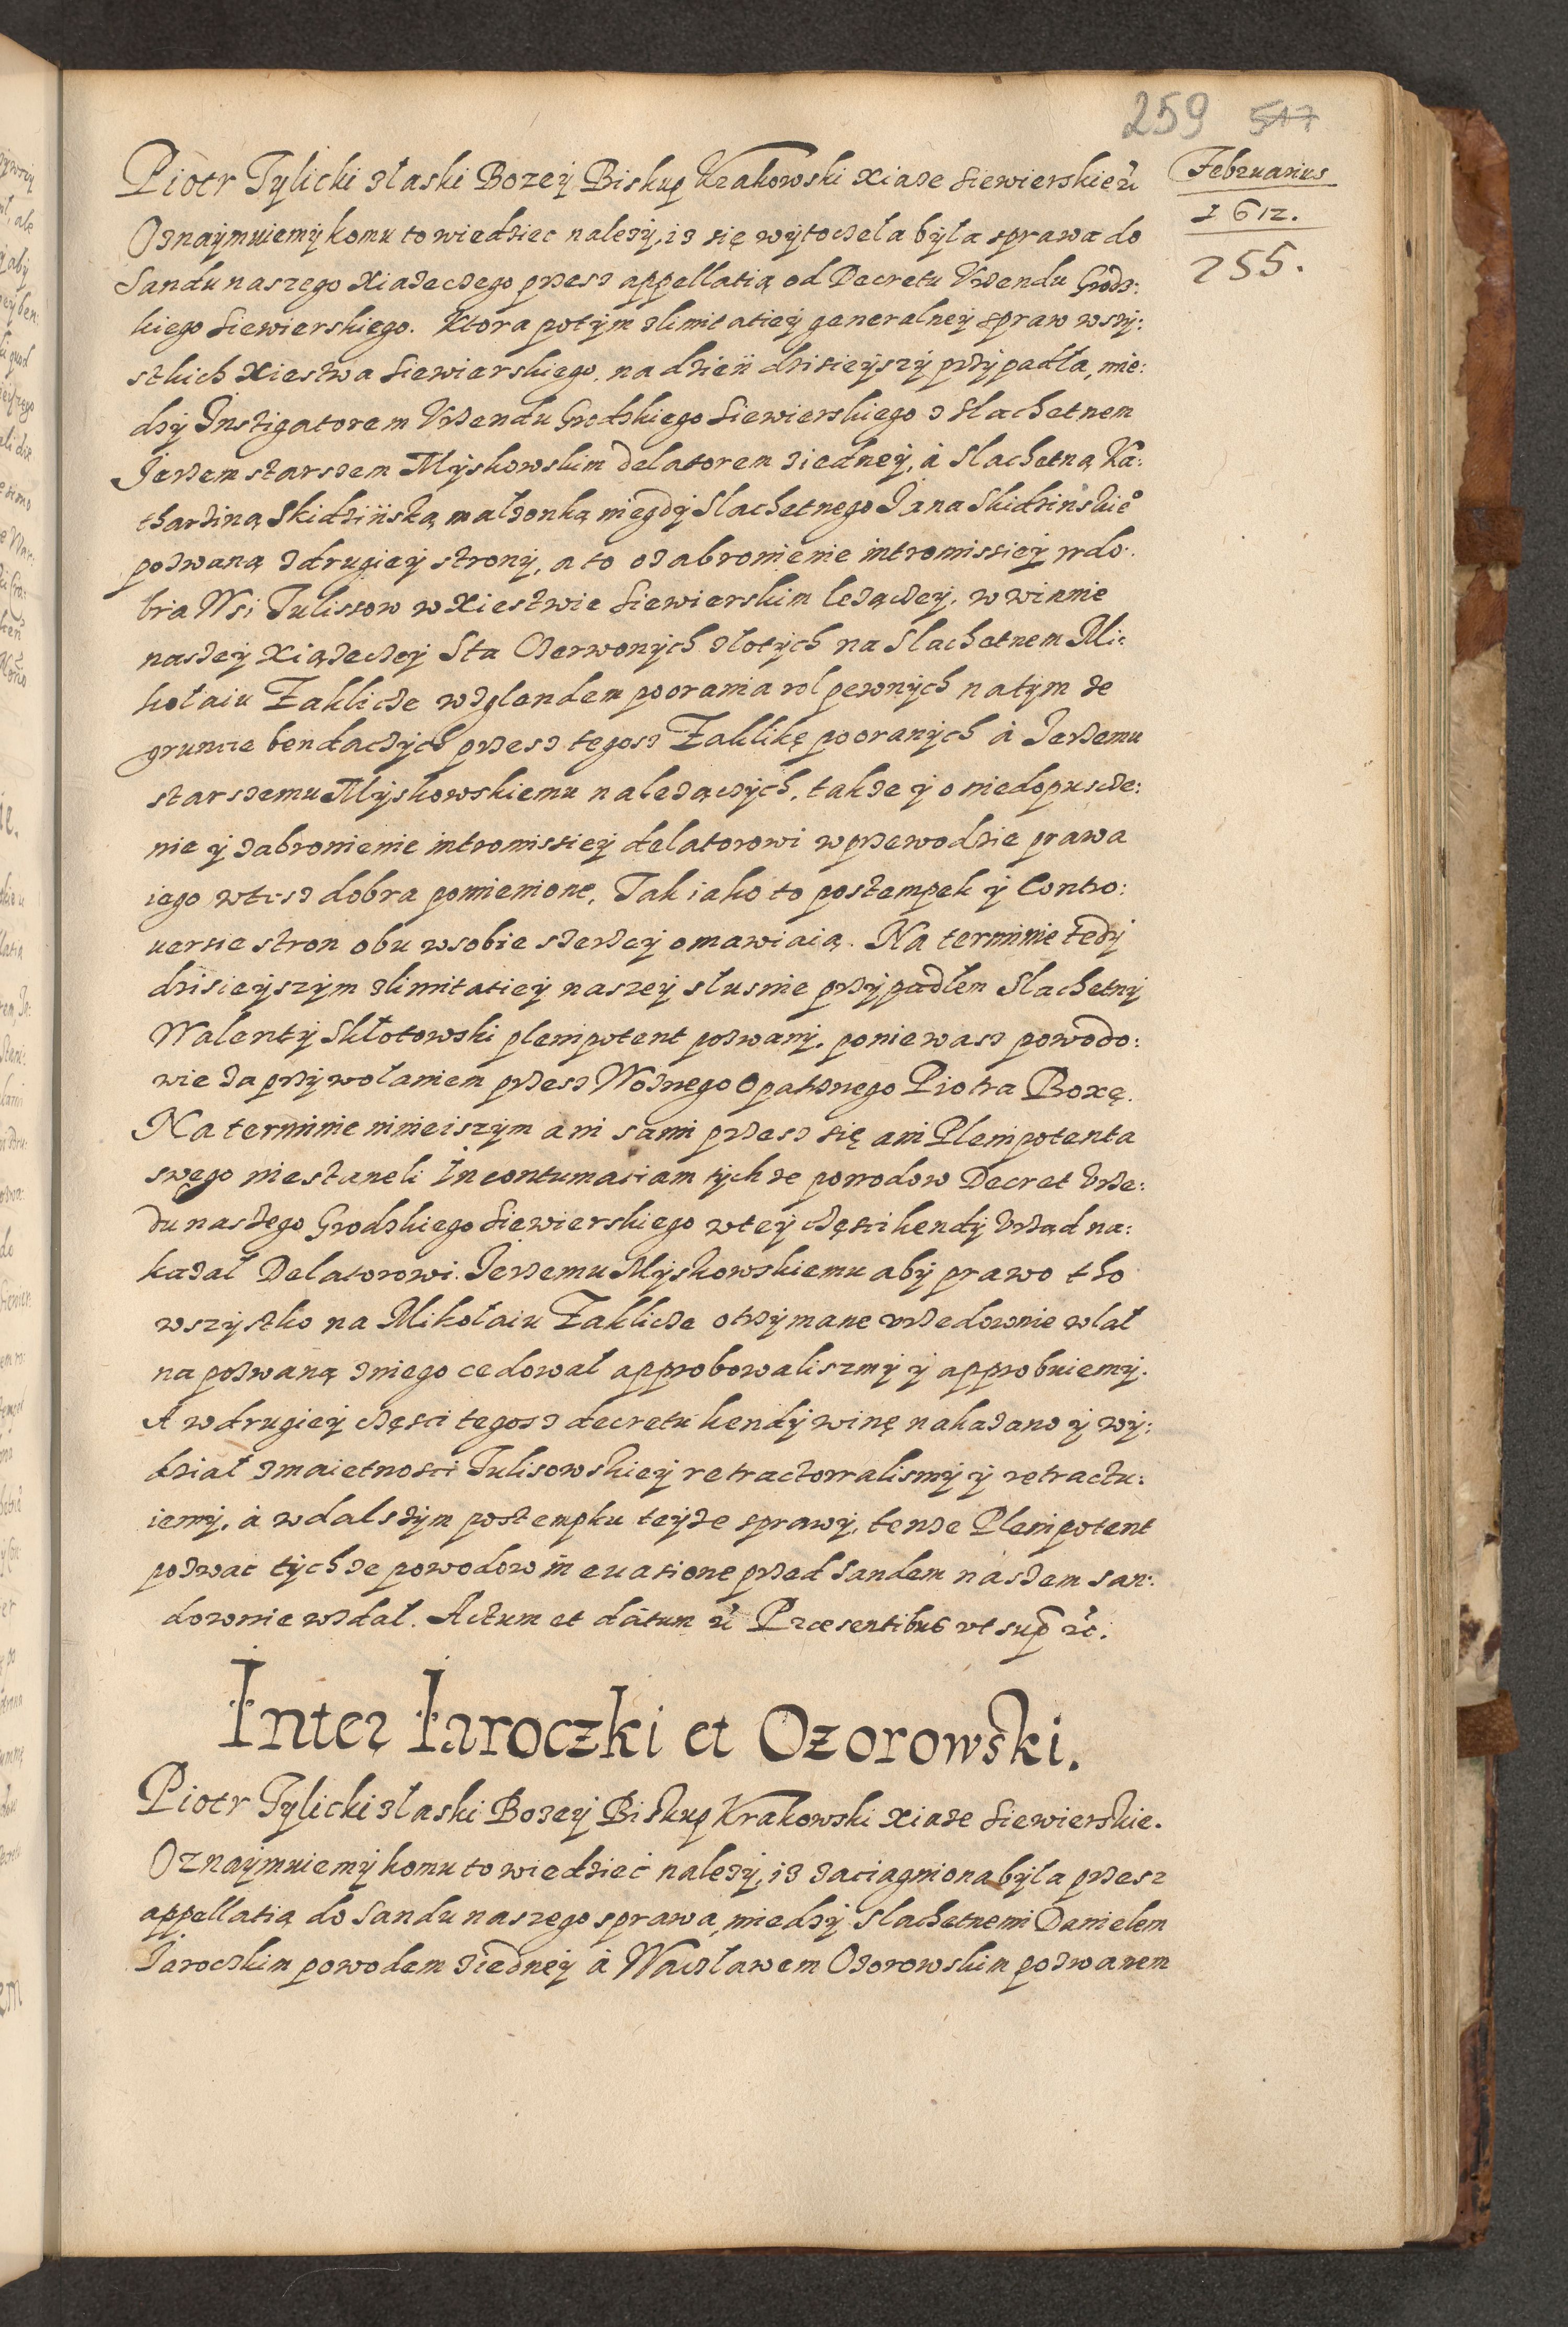 259 547
Februarius
1612.
255.
Piotr Tylicki z łaski Bozey Biskup Krakowski Xiaze Siewierskie etc
Oznaymuiemy komu to wiedziec nalezy, iz się wytoczela była sprawa do
Sandu naszego Xiazeczego przez appellatią od Decretu Vrzendu Grodz:
kiego Siewierskiego. Ktora potym z limitatiey generalney spraw wszy:
stkich Xiestwa Siewierskiego, na dzień dzisieyszy przypadła, mie:
dzy Instigatorem Vrzendu Grodzkiego Siewierskiego z Slachetnem
Jerzem starszem Myskowskim delatorem z iedney, à Slachetną Ka:
tharziną Skidzińską małzonką niegdy Slachetnego Jana Skidzinskieo
pozwaną z drugiey strony, a to o zabronienie intromissiey w do:
bra Wsi Tulissow w Xiestwie Siewierskim lezączey, w winnie
naszey Xiązeczey Sta Czerwonych złotych na Slachetnem Mi:
kołaiu Zaklicze wzglendem poorania rol pewnych na tym ze
gruncie bendaczych przez tegosz Zaklikę pooranych à Jerzemu
starszemu Myskowskiemu nalezączych, takze y o niedopuscze:
nie y zabronienie intromissiey delatorowi w przewodzie prawa
iego w tesz dobra pomienione, Tak iako to postempek y Contro:
uersie stron obu w sobie szerzey omawiaią. Na terminie tedy
dzisieyszym z limitatiey naszey słusnie przypadłem Slachetny
Walenty Skłotowski plenipotent pozwany, poniewasz powodo:
wie za przywołaniem przez Woznego Opatrznego Piotra Boxę.
Na terminie ninieiszym ani sami przez się ani Plenipotenta
swego niestaneli In contumatiam tych ze powodow Decret Vrze:
du naszego Grodzkiego Siewierskiego w tey części kendy Vrząd na:
kazał Delatorowi Jerzemu Myskowskiemu aby prawo tho
wszystko na Mikołaiu Zaklicze otrzymane vrzedownie wlał
na pozwaną z niego cedował approbowaliszmy y approbuiemy.
A w drugiey części tegosz decretu kendy winę nakazano y wy:
dział z maietnosci Tulisowskiey retractowalismy y retractu:
iemy, à w dalszym postempku teyze sprawy, tenze Plenipotent
pozwac tych ze powodow in euasione przed Sandem naszem san:
downie wzdał. Actum et datum etc Præsentibus vt sup etc.
Inter Iaroczki et Ozorowski.
Piotr Tylicki z łaski Bozey Biskup Krakowski Xiaze Siewierskie.
Oznaymuiemy komu to wiedzieć nalezy, iz zaciagniona była przez
appellatią do Sandu naszego sprawa, miedzy Slachetnemi Danielem
Jaroczkim powodem z iedney à Waczławem Ozorowskim pozwanem